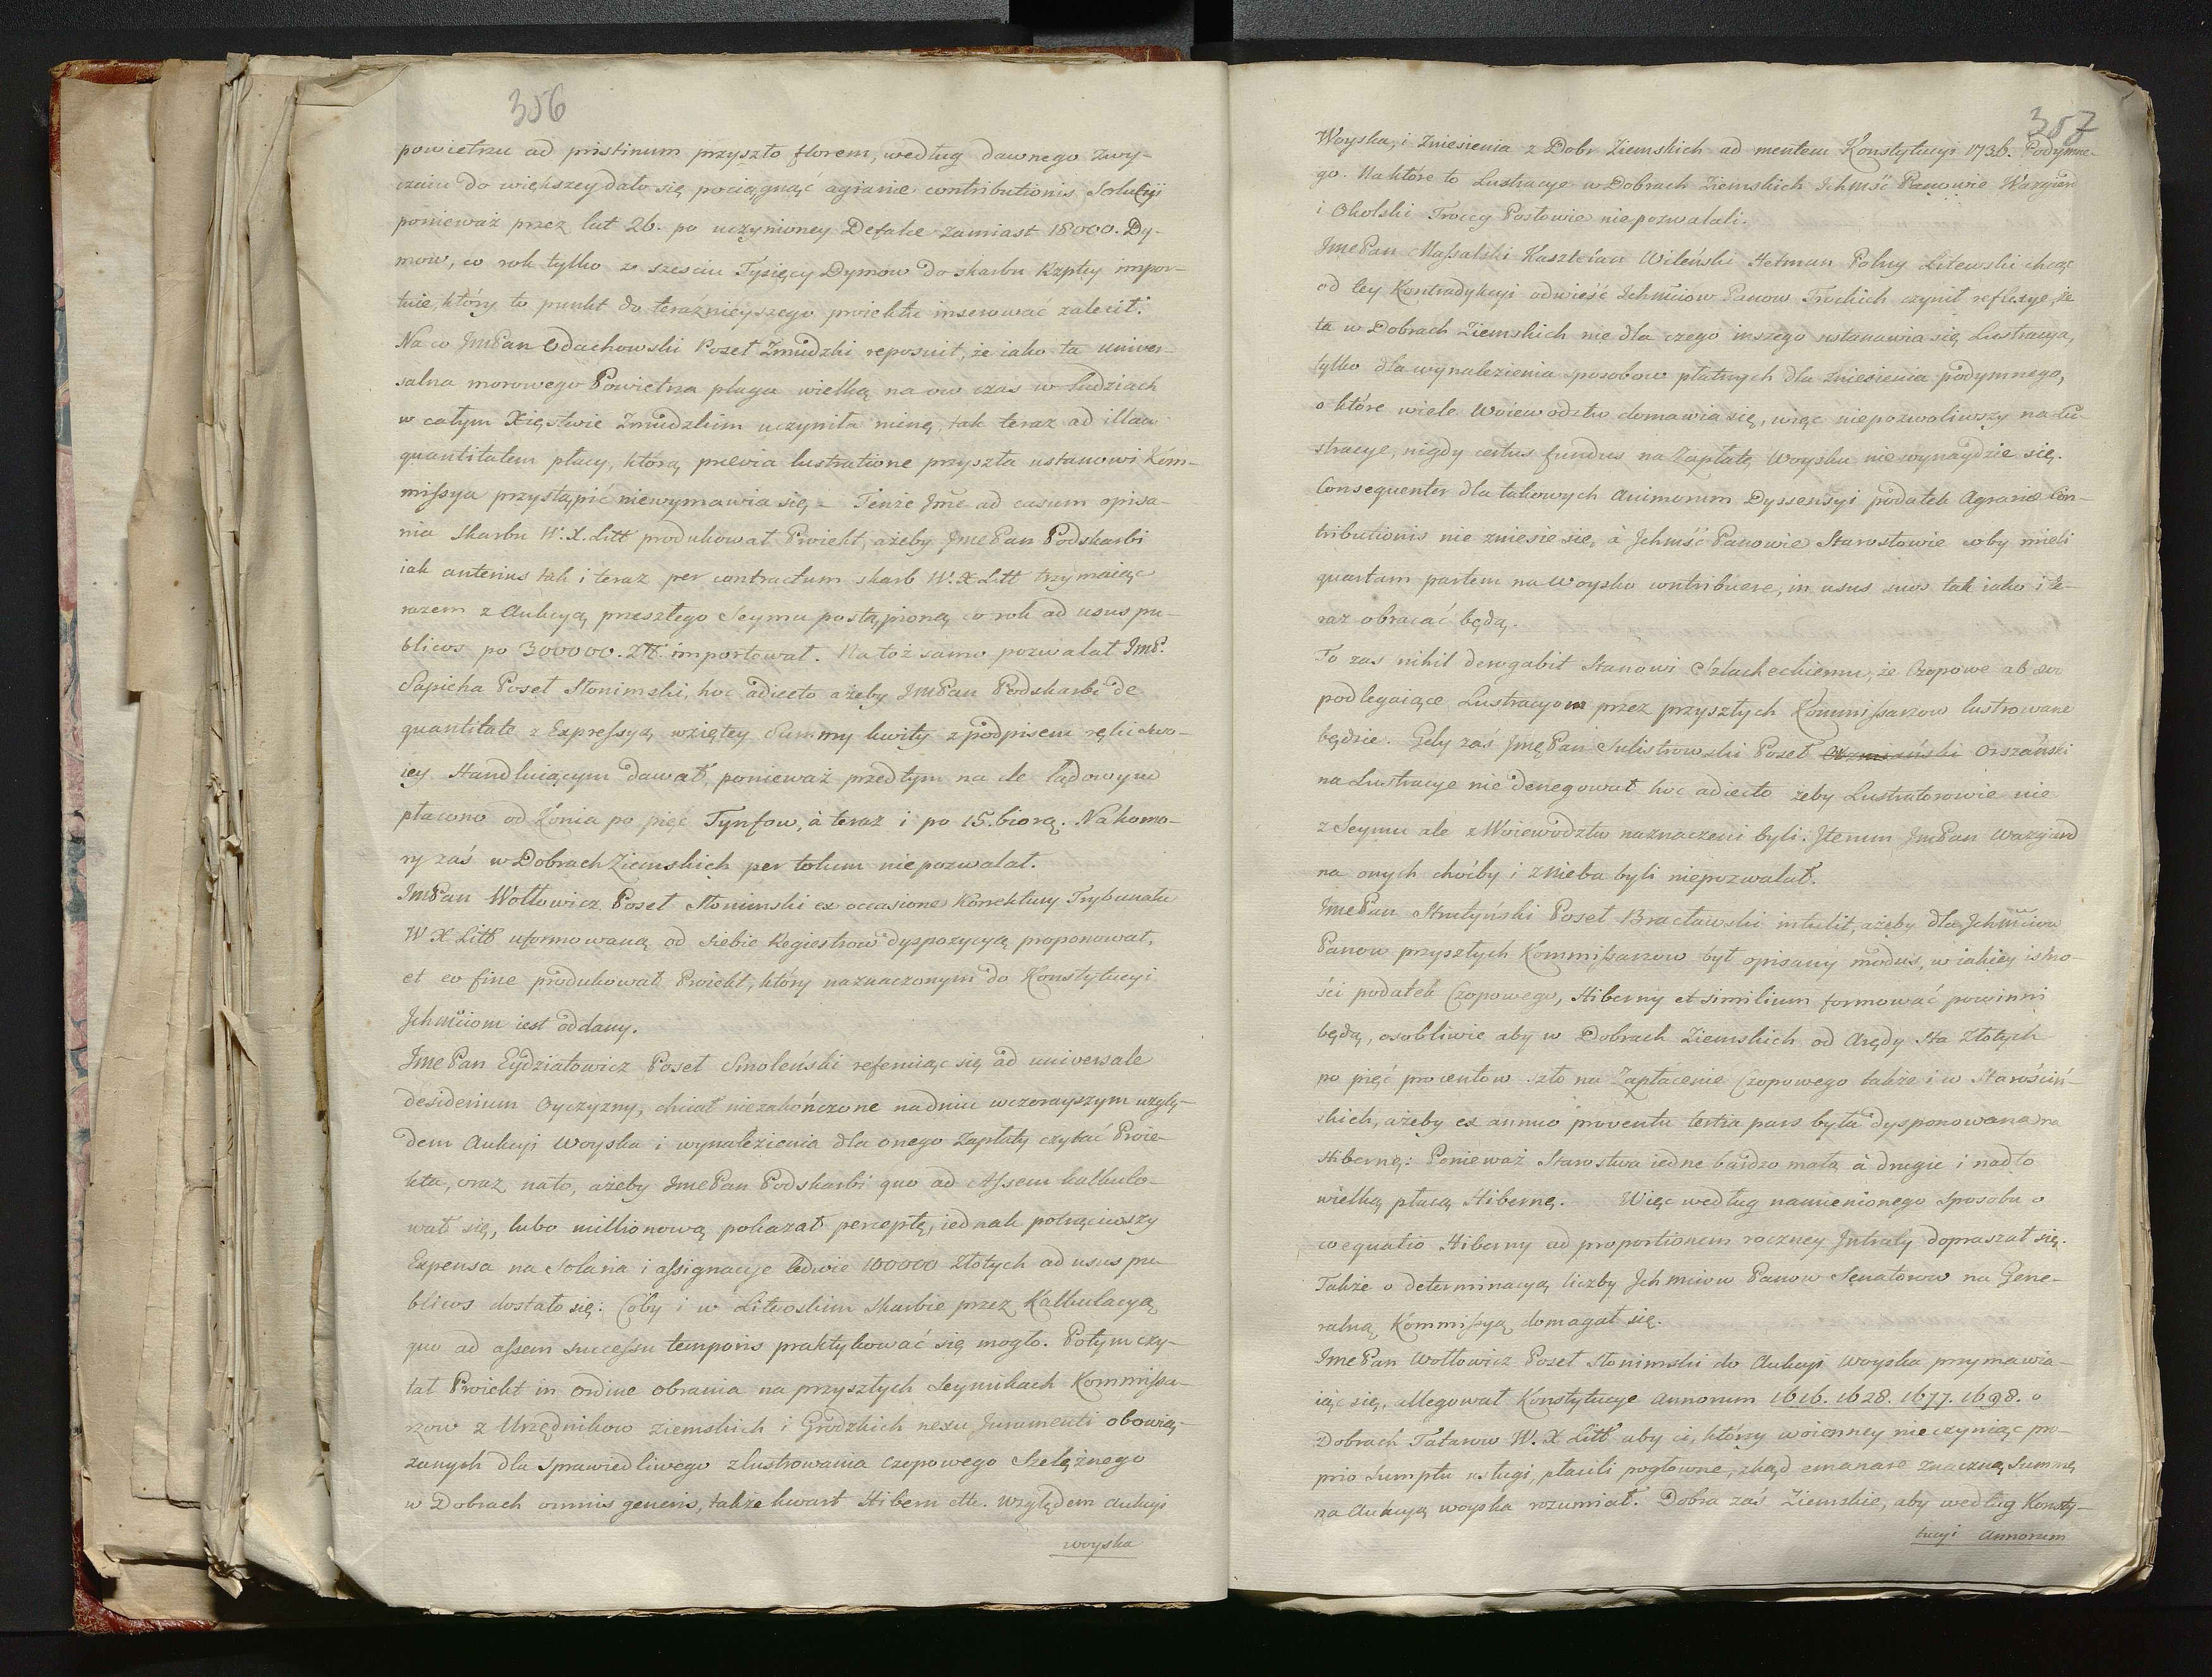 356
powietrzu ad pristinum przyszło florem, według dawnego zwy-
czaiu do większey dało się pociągnąć agrariæ contributionis Solucyi
ponieważ przez lat 26. po uczynioney Defalce zamiast 18000. Dy-
mow, co rok tylko ze szesciu Tysięcy Dymow do skarbu Rzptey impor-
tuie, który to punkt do teraźnieyszego proiektu inserować zalecił.
Na co JmPan Odachowski Poseł Żmudzki reposuit, że iako ta univer-
salna morowego Powietrza plaga wielką na ow czas w ludziach
w całym Xięstwie Żmudzkim uczyniła ruinę, tak teraz ad illam
quantitatem płacy, którą prævia lustratione przyszła ustanowi Kom-
missya przystąpić niewymawia się. Tenże Jmć ad casum opisa-
nia Skarbu W. X. Litt produkował Proiekt, ażeby JmePan Podskarbi
iak anterius tak i teraz per contractum skarb W. X Litt trzymaiąc
razem z Aukcyą przeszłego Seymu postąpioną co rok ad usus pu-
blicos po 300000. Złł. importował. Na toż samo pozwalał JmP.
Sapieha Poseł Słonimski, hoc adiecto ażeby JmPan Podskarbi de
quantitate z Expressyą wziętey Summy kwity z podpisem ręki swo-
iey Handluiącym dawał, ponieważ przedtym na cle lądowym
płacono od Konia po pięć Tynfow, à teraz i po 15. biorą. Na komo-
ry zaś w Dobrach Ziemskich per totum niepozwalał.
JmPan Wołłowicz Poseł Słonimski ex occasione Korrektury Trybunału
W X Litt uformowaną od siebie Regiestrow dyspozycyą proponował,
et eo fine produkował Proiekt, który naznaczonym do Konstytucyi
Jchmciom iest oddany.
JmePan Eydziatowicz Poseł Smoleński referuiąc się ad universale
desiderium Oyczyzny, chciał niezakończone na dniu wczorayszym wzglę-
dem Aukcyi Woyska i wynalezienia dla onego Zapłaty czytać Proie-
kta, oraz na to, ażeby JmePan Podskarbi quo ad Assem kalkulo-
wał się, lubo millionową pokazał perceptę, iednak potrąciwszy
Expensa na Solaria i assignacye ledwie 100000 Złotych ad usus pu-
blicos dostało się: Coby i w Litewskim Skarbie przez Kalkulacyą
quo ad assem successu temporis praktykować się mogło. Potym czy-
tał Proiekt in ordine obrania na przyszłych Seymikach Kommissa-
rzow z Urzędnikow ziemskich i Grodzkich nexu Juramenti obowią-
zanych dla sprawiedliwego zlustrowania czopowego Szelężnego
w Dobrach omnis generis, także kwart Hibern ett. względem Aukcyi
woyska
357
Woyska, i Zniesienia z Dobr Ziemskich ad mentem Konstytucyi 1736. Podymne-
go. Na które to Lustracye w Dobrach Ziemskich Ichmść Panowie Wazgird
i Okolski Troccy Posłowie niepozwalali.
JmePan Massalski Kasztelan Wileński Hetman Polny Litewski chcąc
od tey Kontradykcyi odwieść Jchmciow Panow Trockich czynił reflexye, że
ta w Dobrach Ziemskich nie dla czego inszego ustanawia się Lustracya,
tylko dla wynalezienia sposobow płatnych dla zniesienia podymnego,
o które wiele Woiewodztw domawia się, więc niepozwoliwszy na Lu-
stracye, nigdy certus fundus na Zapłatę Woysku niewynaydzie się.
Consequenter dla takowych Animorum Dyssensyi podatek Agrariæ Con-
tributionis nie zniesie się, à Jchmść Panowie Starostowie coby mieli
quartam partem na Woysko contribuere, in usus suos tak iako i te-
raz obracać będą.
To zas nihil derogabit Stanowi Szlacheckiemu, że Czopowe ab ævo
podlegaiące Lustracyom przez przyszłych Kommissarzow lustrowane
będzie. Gdy zaś JmęPan Sulistrowski Poseł Oszmiański Orszański
na Lustracye nie denegował hoc adiecto żeby Lustratorowie nie
z Seymu ale z Woiewodztw naznaczeni byli. Jterum JmPan Wazgird
na onych choćby i z Nieba byli niepozwalał.
JmePan Strutyński Poseł Bracławski intulit, ażeby dla Jchmciow
Panow przyszłych Kommissarzow był opisany modus, w iakiey isto-
ści podatek Czopowego, Hiberny et similium formować powinni
będą, osobliwie aby w Dobrach Ziemskich od Arędy Sta Złotych
po pięć procentow szło na Zapłacenie Czopowego także i w Starościń-
skich, ażeby ex annuo proventu tertia pars była dysponowana na
Hibernę: Ponieważ Starostwa iedne bardzo małą à drugie i nadto
wielką płacą Hibernę. Więc według namienionego Sposobu o
coequatio Hiberny ad proportionem roczney Jntraty dopraszał się.
Także o determinacyą liczby Jchmciow Panow Senatorow na Gene-
ralną Kommissyą domagał się.
JmePan Wołłowicz Poseł Słonimski do Aukcyi woyska przymawia-
iąc się, allegował Konstytucye Annorum 1616. 1628. 1677. 1698. o
Dobrach Tatarow W. X Litt aby ci, którzy woienney nieczyniąc pro-
prio Sumptu usługi, płacili pogłowne, zkąd emanare znaczną Summę
na Aukcyą woyska rozumiał. Dobra zaś Ziemskie, aby według Konsty-
tucyi Annorum